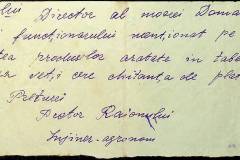 Director al moșiei Doma
funcționarului menționat pe
produselor arătate în tabe
veți cere chitanța de pla
Prețuri
Pretor Raionului
Inginer-agronom